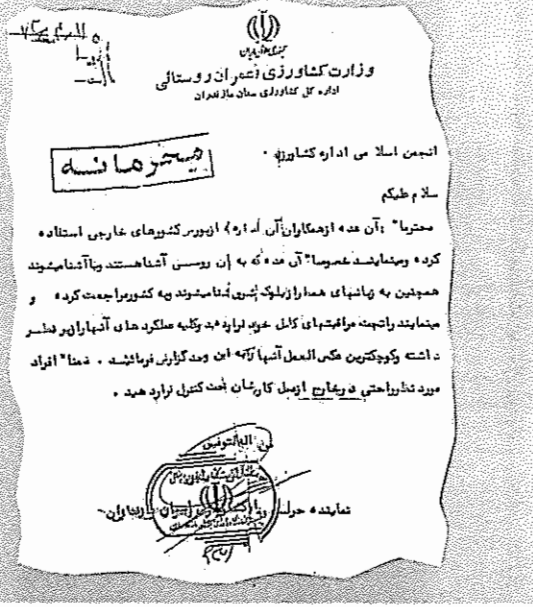 وزارت کشاورزی و عمران روستائی
اداره کل کشاورزی ستان مازندران
محرمانه
انجمن اسلا می اداره کشاورزی .
سلا م علیکم
محترما" آن عده ازهمکاران آن اداره که ازبورس کشورهای خارجی استفاده
کرده ومینمایند خصوصا" آن عده که به زبان روسی آشناهستند ویاآشنامیشوند
همچنین به زبانهای همدا رازبلوک شرق آشنامیشوند وبه کشورمراجعت کرده و
مینمایند راتحت مراقبتهای کامل خود قرارد هید وکلیه عملکرد های آنهارازیر نظر
داشته وکوچکترین عکس العمل آنها رابه این واحد گزارش فرمائید . ضمنا" افراد
مورد نظرراحتی درخارج ازمحل کارشان تحت کنترل قرارد هید .
من الله التوفیق
نماینده